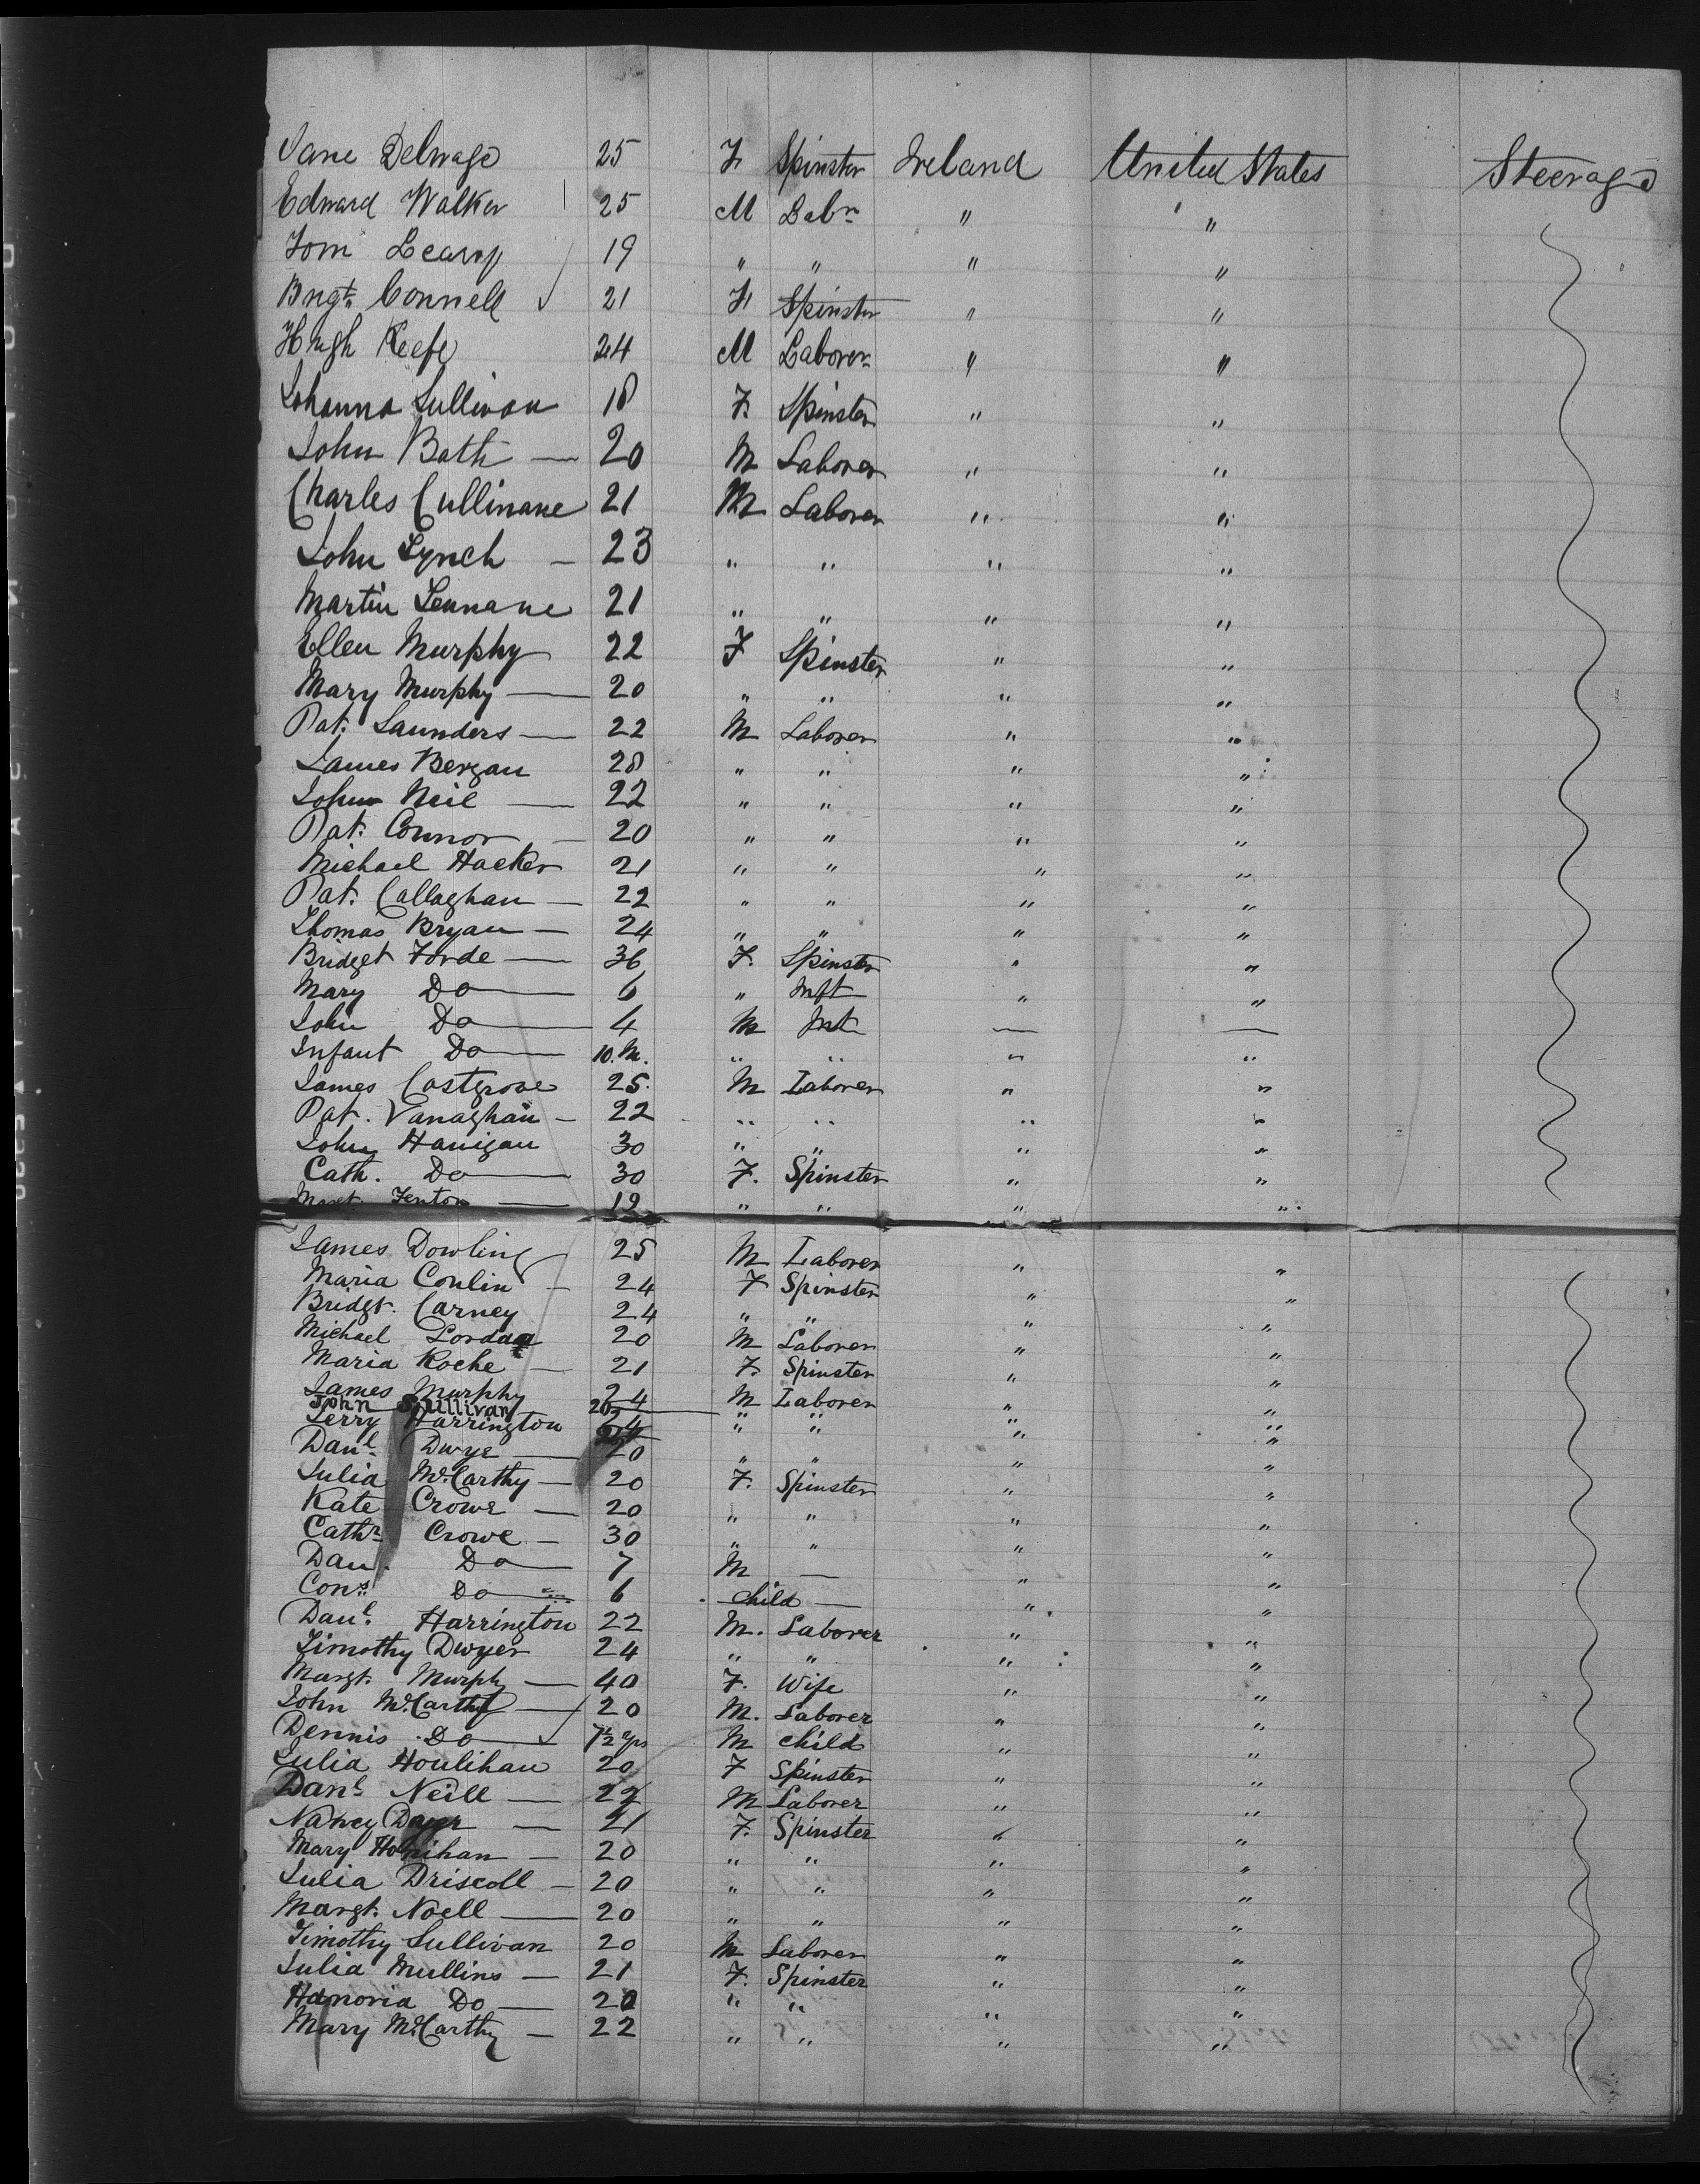 Jane Delmage 25 F Spinster Ireland United States Steerage
Edward Walker 25 M Labr " "
Tom Leary 19 " " " "
Brigt. Connell 21 F Spinster " "
Hugh Keefe 24 M Laborer " "
Johanna Sullivan 18 F. Spinster " "
John Bath — 20 M Laborer " "
Charles Cullinane 21 M Laborer " "
John Lynch — 23 " " " "
Martin Lennane 21 " " " "
Ellen Murphy 22 F Spinster " "
Mary Murphy — 20 " " " "
Pat. Saunders — 22 M Laborer " "
James Bergan 28 " " " "
John Neil — 22 " " " "
Pat. Connor — 20 " " " "
Michael Hacker 21 " " " "
Pat. Callaghan — 22 " " " "
Thomas Bryan — 24 " " " "
Bridget Forde — 36 F. Spinster " "
Mary Do — 6 " Inft " "
John Do — 4 M Inft — —
Infant Do — 10. M. " " " "
James Costgrove 25. M Laborer " "
Pat. Vanaghan — 22 " " " "
John Hanigan 30 " " " "
Cath. Do — 30 F. Spinster " "
Margt. Fenton — 19 " " " "
James Dowling 25 M Laborer " "
Maria Conlin — 24 F Spinster " "
Bridgt. Carney 24 " " " "
Michael 20 M Laborer " "
Maria Roche — 21 F. Spinster " "
James Murphy 24 M Laborer " "
John Sullivan 20 " " " "
Jerry Harrington 24 " "
Danl. Dwyer — 20 " " " "
Julia McCarthy — 20 F. Spinster " "
Kate Crowe — 20 " " " "
Cathr Crowe — 30 " " " "
Dan. Do — 7 M — " "
Cons. Do — 6 child — " "
Danl. Harrington 22 M. Laborer " "
Timothy Dwyer 24 " " " "
Margt. Murphy — 40 F. Wife " "
John McCarthy — 20 M. Laborer " "
Dennis Do — 7½ yrs M child " "
Julia Houlihan 20 F Spinster " "
Danl. Neill — 22 M Laborer " "
Nancy Dwyer — 21 F. Spinster " "
Mary Honihan — 20 " " " "
Julia Driscoll — 20 " " " "
Margt. Noell — 20 " " " "
Timothy Sullivan 20 M Laborer " "
Julia Mullins — 21 F. Spinster " "
Hanoria Do — 20 " " " "
Mary McCarthy — 22 " " " "